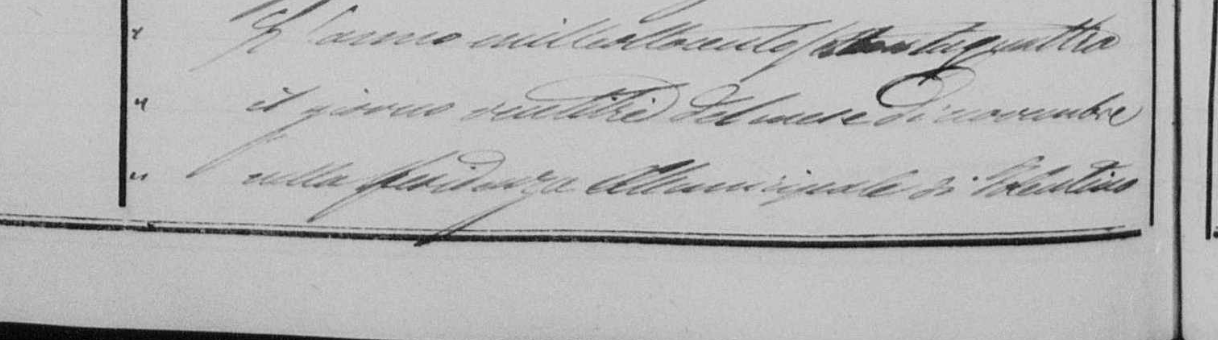 " L'anno milleottocentosettantaquattro
" il giorno ventitre del mese di novembre
" nella Residenza Municipale di Tolentino